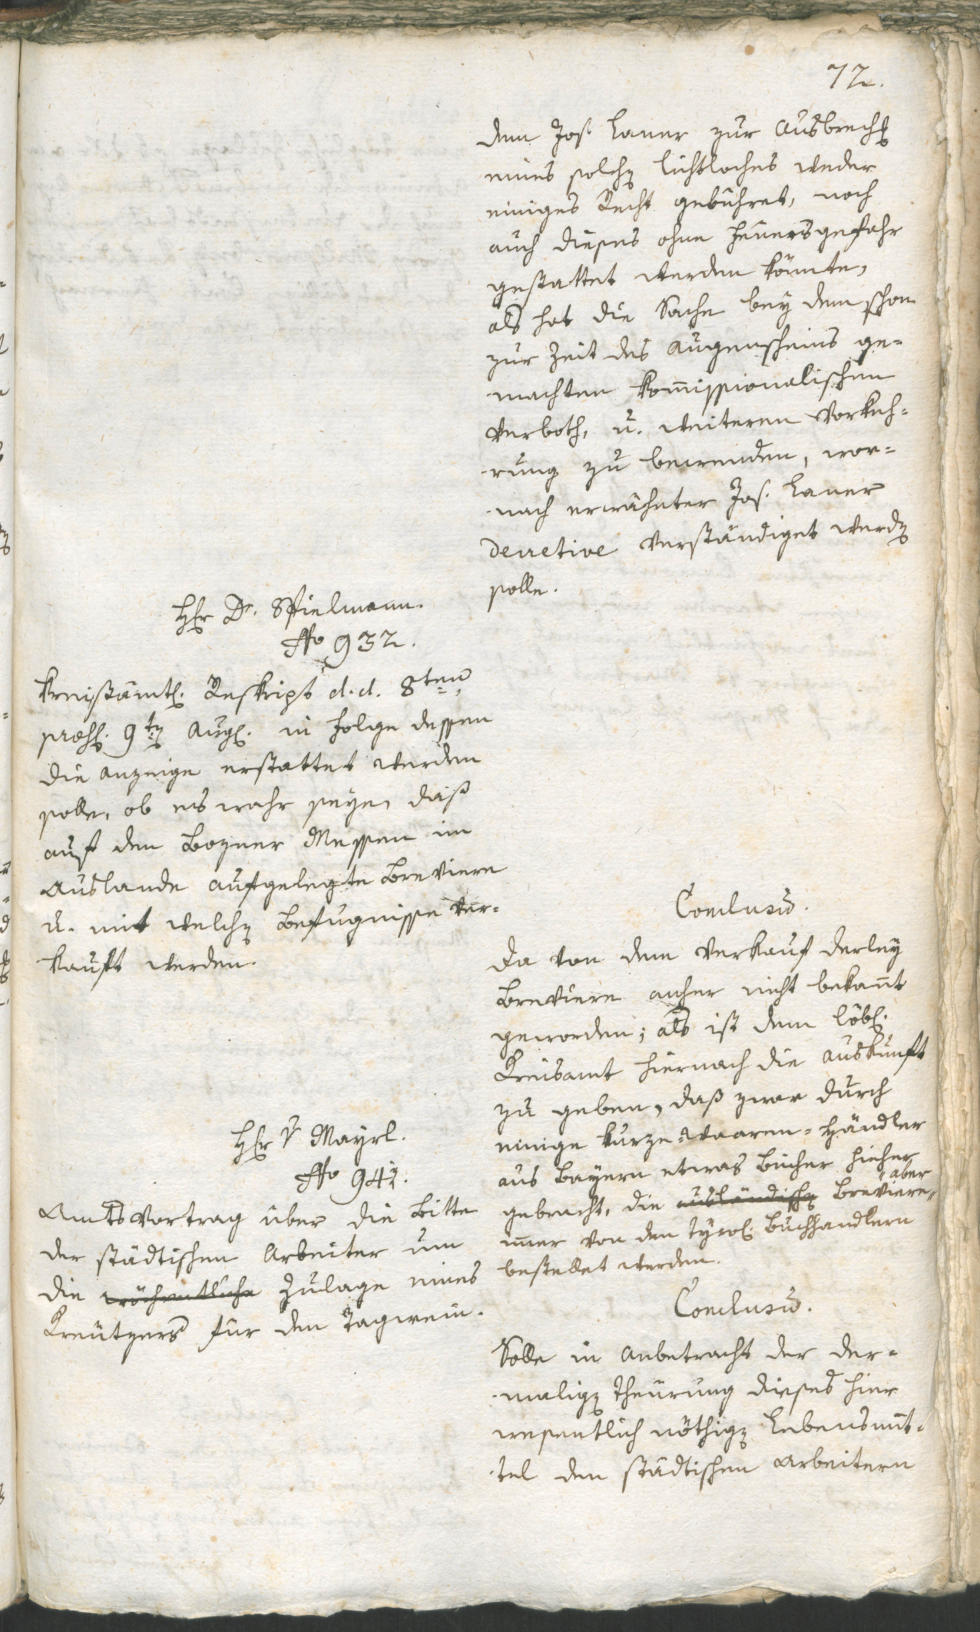 72.
dem Jos. Laner zur Ausbrechg
eines solchen lichtloches weder
einiges Recht gebühret, noch
auch dieses ohne Feüersgefahr
gestattet werden könnte,
als hat die Sache bey dem schon
zur Zeit des Augenscheins ge-
machten kommissionalischen
Verboth, u. weiteren Vorkeh-
rung zu bewenden, wor-
nach erwähnter Jos. Laner
decretive verständiget werden
solle.
Hr Dr. Spielmann.
No 932.
Kreisämtl. Reskript d. d. 8ten
praes. 9ten Aug. in Folge dessen
die Anzeige erstattet werden
solle, ob es wahr seye, daß
auf den Bozner Messen im
Auslande aufgelegte Breviere
u. mit welchen Befugnisse ver-
kauft werden.
Conclusum.
Da von dem Verkauf derley
Breviere anher nicht bekannt
geworden; als ist dem löbl.
Kreisamt hiernach die Auskunft
zu geben, daß zwar durch
einige kurze-Waaren-Händler
aus Bayern etwas Bücher hieher
gebracht, die ausländischen aber Breviere
immer von den Tyrol. Buchhandlern
bestellet werden.
Hr v Mayrl.
No 941.
Amtsvortrag über die Bitte
der städtischen Arbeiter um
die wöchentliche Zulage eines
Kreützers für den Tagwein.
Conclusum.
Solle in Anbetracht der der-
maligen Theürung dieses hier
wesentlich nöthigen Lebensmit-
tel den städtischen Arbeitern